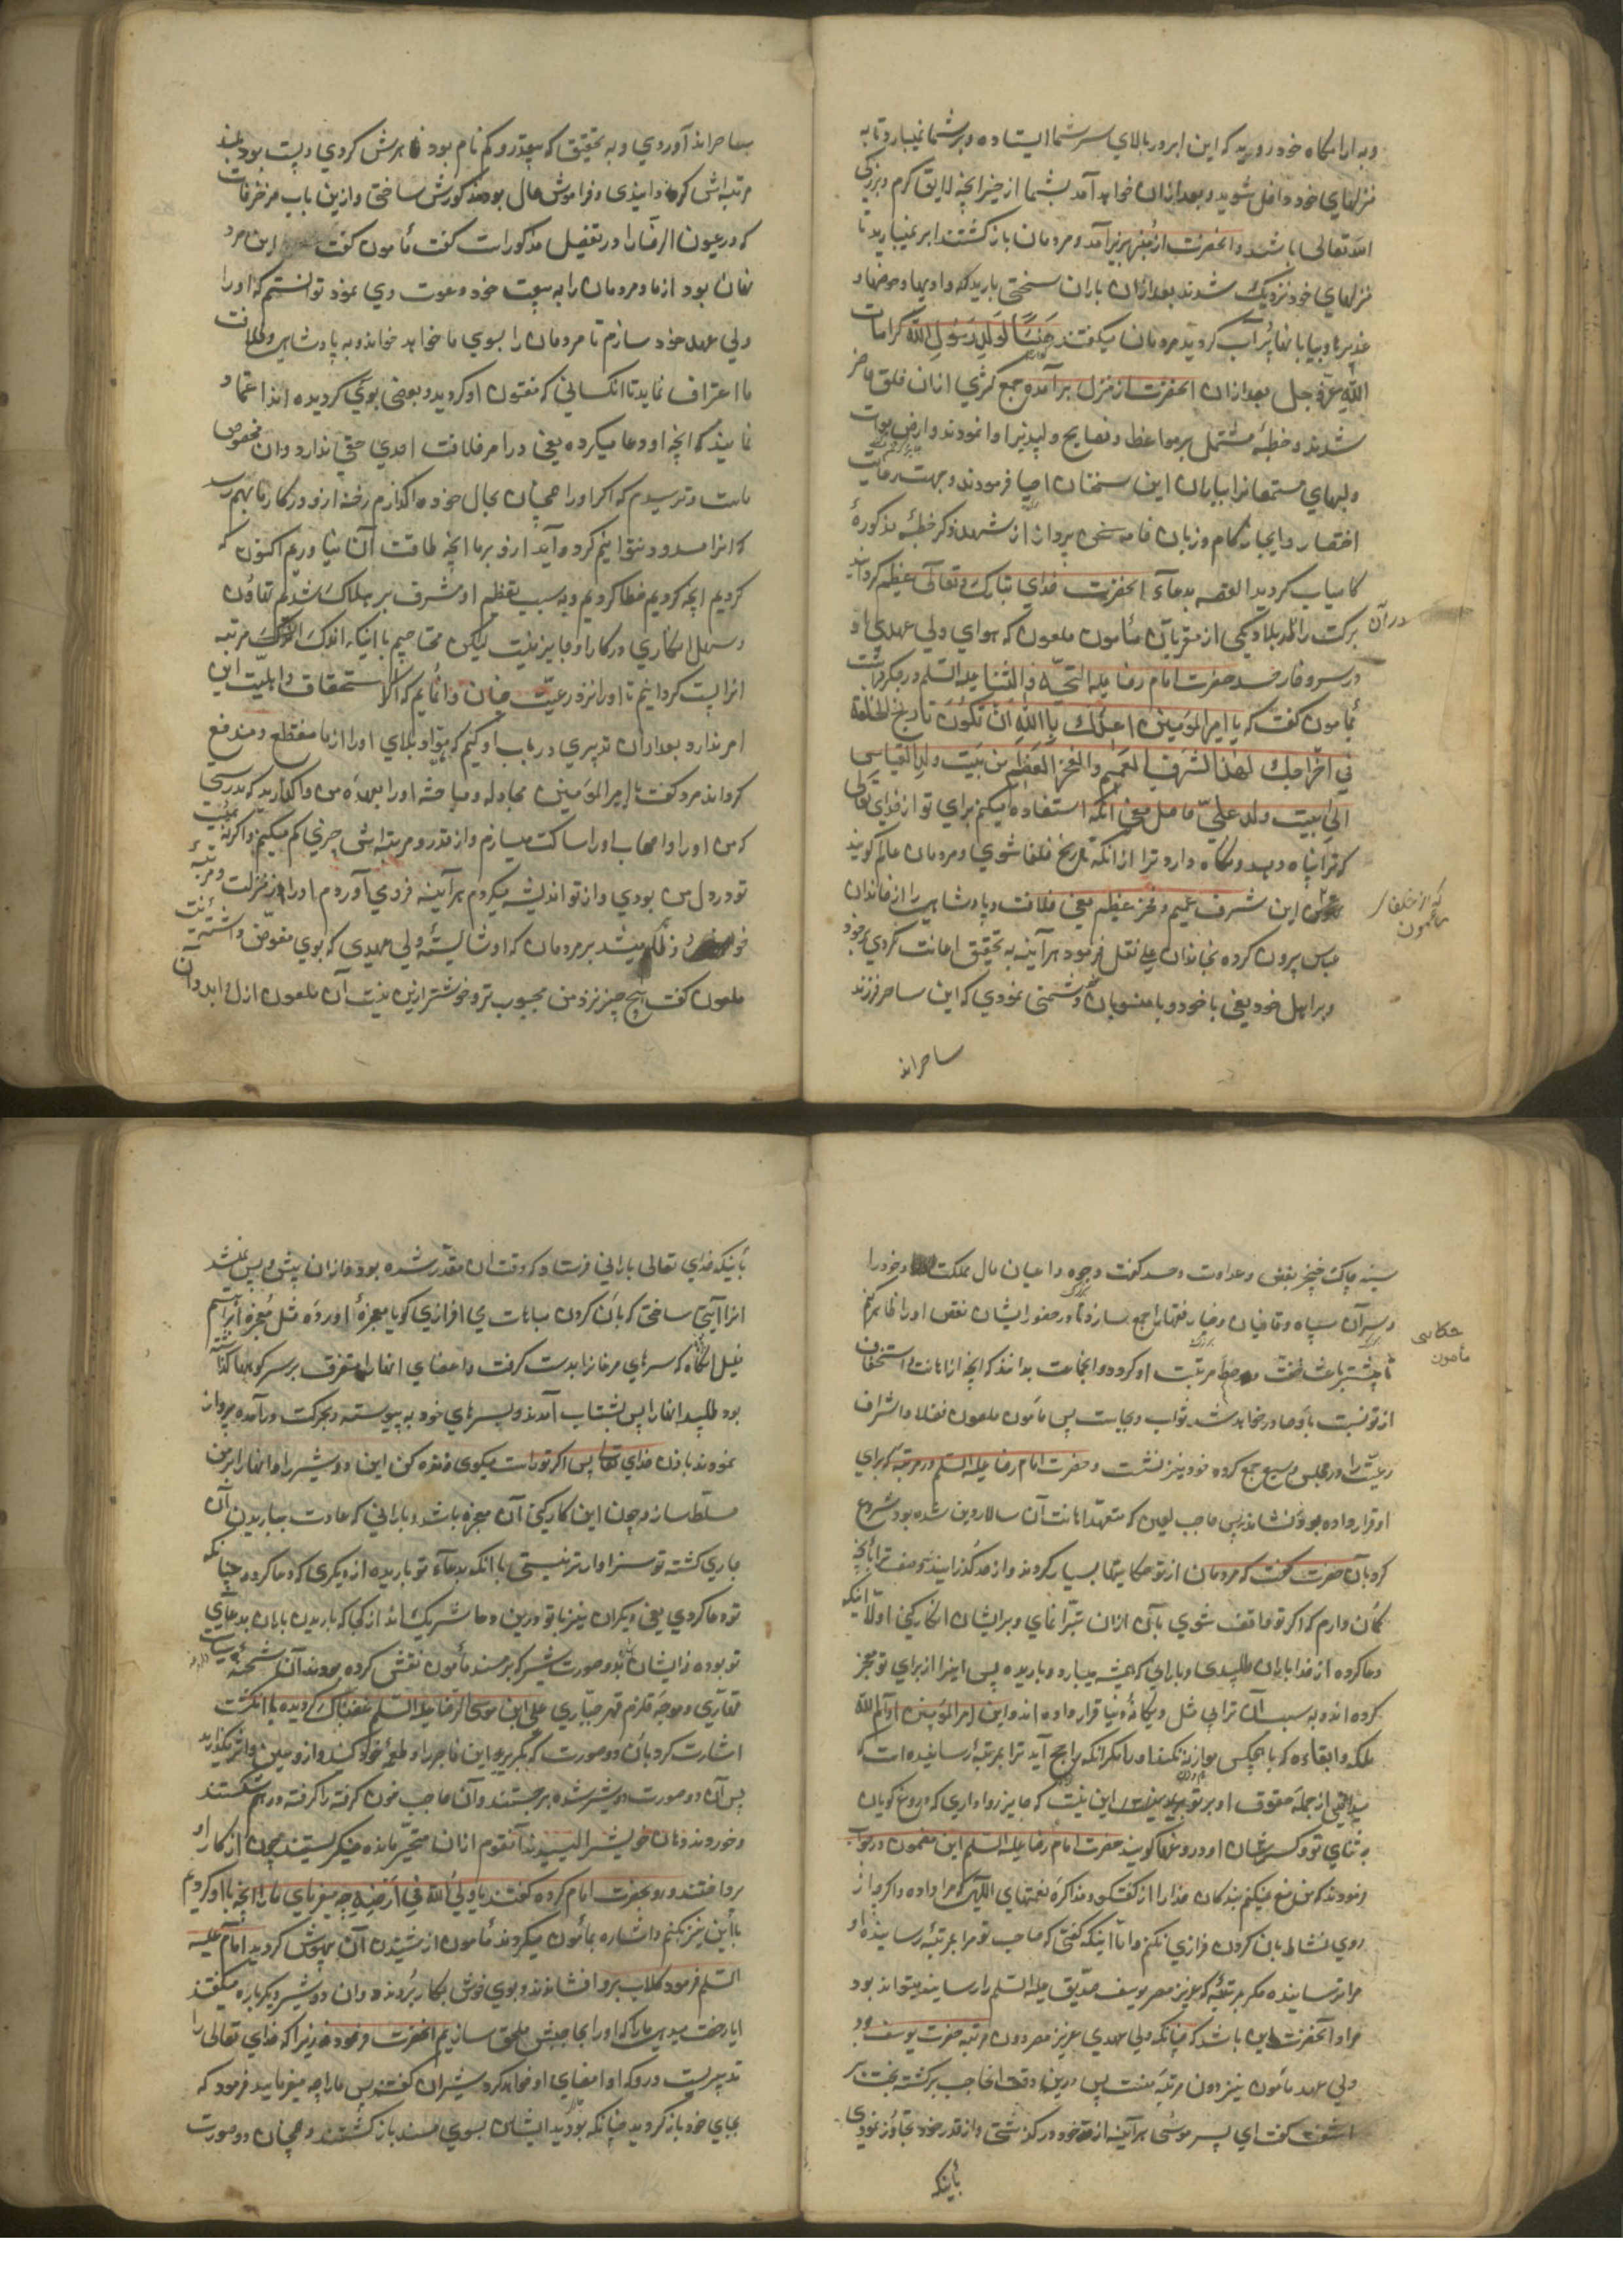 و به ارامگاه خود روید که این ابر در بالای سر شما ایستاده و بر شما نمیبارد تا به
منزلهای خود داخل شوید و بعد از ان خواهد آمد بشما از خیر انچه لایق کرم و بزرکی
الله تعالی باشد و انحضرت از منبر بزیر آمد و مردمان بازکشتند ابر نمیبارید تا
منزلهای خود نزدیک شدند بعد از ان باران سختی بارید که وادیها و حوضها و
غدیرها و بیابانها پر آب کردید مردمان میکفتند هَنیئًا لِوَلَدِ رَسُولِ الله کرامات
اللهِ عزّ و جل بعد از ان انحضرت از منزل برآمده جمع کثری از ان خلق حاضر
شدند و خطبه مشتمل بر مواعظ و نصایح دلپذیر ادا نمودند و ارض موات
دلهای مستمعانرا بباران این سخنان احیا فرمودند و جهت رعایت
اختصار و ایجاز کام و زبان خامه سخن پرداز از شهد ذکر خطبه مذکورهٔ
کامیاب کردید القصه بدعآء انحضرت خدای تبارک و تعالی عظیم کردانید
در آن
برکت را در بلاد یکی از مقربان مأمون ملعون که هوای ولی عهدی او
در سر و خار حسد حضرت امام رضا علیه التحیّة و الثنا علیه السلم در جکر داشت
بمأمون کفت که یا امیرالمؤمنین اعیذُک بِاللهِ اَن تَکُونَ تاریخ الخلفاء
فی اخراجک لهٰذا الشرفِ العَمیم والفخر العَظیم من بَیت ولد العباس
الی بَیت ولد علیّ حاصل معنی آنکه استعاذه میکنم برای تو از خدای تعالی
که ترا پناه دهد و نکاه دارد ترا از انکه تاریخ خلفا شوی و مردمان عالم کویند
که از خلفا مأمون
این شرف عمیم و فخر عظیم یعنی خلافت و پادشاهی را از خاندان
عباس بیرون کرده بخاندان علی نقل فرمود هر آینه به تحقیق اعانت کردی بر خود
و بر اهل خود یعنی با خود و با منسوبان دشمنی نمودی که این ساحر فرزند
ساحرانرا
ساحرانرا آوردی و به تحقیق که بیقدر و کم نام بود ظاهرش کردی و پست بود بلند
مرتبه اش کردانیدی و فراموش حال بود مذکورش ساختی و ازین باب مزخرفات
که در عیون الرضا در تفصیل مذکورات کفت مأمون کفت این مرد
نهان بود از ما و مردمان را به بیعت خود دعوت می نمود توانستم که او را
ولی عهد خود سازم تا مردمان را بسوی ما خواهد خواند و به پادشاهی و خلافت
ما اعتراف نماید تا انکسانی که مفتون او کردید و بعضی بوی کردیده اند اعتقاد
نمایند که انچه او دعا میکرده یعنی در امر خلافت امدی حقی ندارد و ان مخصوص
ماست و ترسیدم که اکر او را همچنان بحال خود واکذارم رخنه ازو در کار ما بهم رسد
که انرا مسدود نتوانیم کرد و آید ازو بر ما انچه طاقت آن نیاوریم اکنون که
کردیم انچه کردیم خطا کردیم و به سبب تعظیم او مشرف بر هلاک شدیم تهاون
و سهل انکاری در کار او جایز نیست لیکن محتاجیم با اینکه اندک اندک مرتبه
انرا پست کردانیم تا او را نزد رعیّت چنان وانمایم که اکر استحقاق و اهلیّت این
امر ندارد بعد از ان تدبیری در باب او کنیم که مواد بلای او را از ما منقطع و مندفع
کرداند مرد کفت یا امیرالمؤمنین مجادله و مباحثه او را بعهدهٔ من واکذارید که بدرستی
که من او را و اصحاب او را ساکت میسازم و از قدر و مرتبه اش چیزی کم میکنم و اکر نه هیبت
تو در دل من بودی و از تو اندیشه میکردم هر آینه فرود می آوردم او را از منزلت و مرتبهٔ
خود و ظاهر میشد بر مردمان که او شایسته ولی عهدی که بوی مفوّض داشتهٔ نیست
ملعون کفت هیچ چیز نزد من محبوب تر و خوشتر ازین نیست آن ملعون ازل و ابد و آن
سینه چاک خنجر بغض و عداوت و حسد کفت وجوه و اعیان مال مملکت خود را
و سران سپاه و قاضیان و خیار فقها را جمع ساز تا در حضور ایشان نقص او را ظاهر کنم
حکایت مأمون
تا بیشتر باعث خفت و حط مرتبت او کردد و انجماعت بدانند که انچه از اهانت و استخفاف
از تو نسبت باو صادر خواهد شد ثواب و بجاست پس مأمون ملعون فضلا و اشراف
رعیّت را در مجلس وسیع جمع کرد و خود نیز نشست و حضرت امام رضا علیه السلم در مرتبه که برای
او قرار داده بود نشاند پس حاجب لعین که متعهد اهانت آن سالار دین شده بود شروع
کرد بآن حضرت کفت که مردمان از تو حکایتها بسیار کردند و از حد کذرانیدند وصف ترا بانچه
کمان دارم که اکر تو واقف شوی بآن از ان تبرّا نمای و بر ایشان انکار کنی اولا اینکه
دعا کرده از خدا باران طلبیدی و بارانی که همیشه میبارد و باریده پس اینرا از برای تو معجز
کرده اند و به سبب آن ترا بی مثل و یکانهٔ دنیا قرار داده اند و این امیرالمؤمنین ادام الله
ملکه و ابقاءه که با هیچکس موازنه نکنند او را مکر انکه راجح آید ترا بمرتبهٔ رسانیده است که
میدانی از جمله حقوق او بر تو این نیست که جایز رواداری که دروغ کویان
به ثنای تو و کسرشان او دروغها کویند حضرت امام رضا علیه السلم این مضمون در جواب
فرمودند که من منع نمیکنم بندکان خدا را از کفتکو و مذاکره نعمتهای اللهی که مرا داده و اکر چه از
روی نشاط بان کردن فرازی نکنم و امّا اینکه کفتی که صاحب تو مرا بمرتبهٔ رسانیده او
مرا نرسانیده مکر بمرتبهٔ که عزیز مصر یوسف صدّیق علیه السلم را رسانید میتواند بود
مراد آنحضرت این باشد که چنانکه ولی عهدی عزیز مصر دون مرتبه حضرت یوسف بود
ولی عهد مأمون نیز دون مرتبهٔ منست پس درین وقت انحاجب برکشته بخت بر
اشفت کفت ای پسر موسی هر آینه از حد خود در کذشتی و از قدر خود تجاوز نمودی
باینکه
باینکه خدای تعالی بارانی فرستاد که وقت ان مقدّر شده بود که از ان پیش و پس نمیشد
انرا آیتی ساختی که بآن کردن مباهات می افرازی کویا معجزهٔ اوردهٔ مثل معجزه ابراهیم
خلیل انکاه که سرهای مرغانرا بدست کرفت و اعضای انها را متفرق بر سر کوهها کذاشته
بود طلبید انها را پس بشتاب آمدند و بسرهای خود به پیوسته و بحرکت درآمده پرواز
نمودند باذن خدای تعالی پس اکر تو راست میکوی زنده کن این دو شیر را و انها را بر من
مسلّط ساز و چون این کار کنی آن معجزه باشد و بارانی که عادت بباریدن آن
جاری کشته تو سزاوارتر نیستی با انکه بدعآء تو باریده از دیکری که دعا کرده چنانکه
تو دعا کردی یعنی دیکران نیز با تو درین دعا شریک اند از کجا که باریدن باران بدعای
تو بوده نه ایشان و دو صورت شیر که بر مسند مأمون نقش کرده بودند آن شحنهٔ
قهّاری و موجهٔ قلزم قهر جبّاری علی ابن موسی الرضا علیه السلم غضبناک کردیده با انکشت
اشارت کرد بآن دو صورت که بکیرید این فاجر را و طعمهٔ خود کنید و از و عین و اثر نکذارید
پس آن دو صورت دو شیر شده برجستند و آن حاجب خون کرفته را کرفته در هم شکستند
و خوردند و خونش را لیسیدند آنقوم از ان متحیّر مانده مینکریستند چون از کار او
پرداختند رو بحضرت امام کرده کفتند یا ولیّ الله فی اَرْضِهِ چه میفرمای ما را انچه با او کردیم
با این نیز بکنیم و اشاره بمأمون میکردند مأمون از شنیدن آن بیهوش کردید امام علیه
السلم فرمود کلاب برو افشاندند و بوی خوش بکار بردند و ان دو شیر دیکرباره میکفتند
ایا رخصت میدهی ما را که او را بصاحبش ملحق سازیم انحضرت فرمود نه زیرا که خدای تعالی را
تدبیریست درو که او امضای او خواهد کرد شیران کفتند پس ما را چه میفرمایید فرمود که
بجای خود باز کردید چنانکه بودید ایشان بسوی مسند باز کشتند و همچنان دو صورت